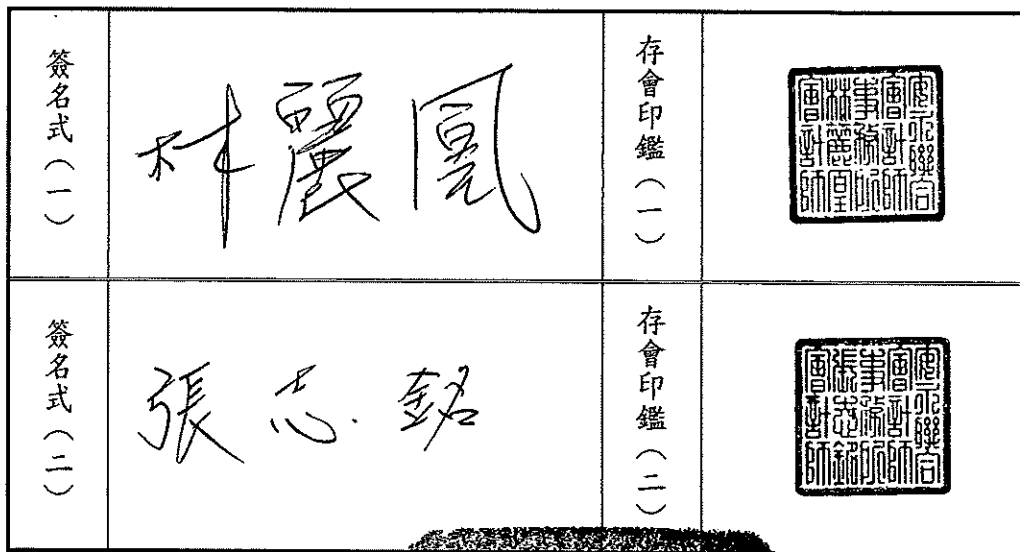 簽名式(一)
林麗凰
存會印鑑(一)
安永聯合
會計師
事務所
林麗凰
會計師
簽名式(二)
張志銘
存會印鑑(二)
安永聯合
會計師
事務所
張志銘
會計師